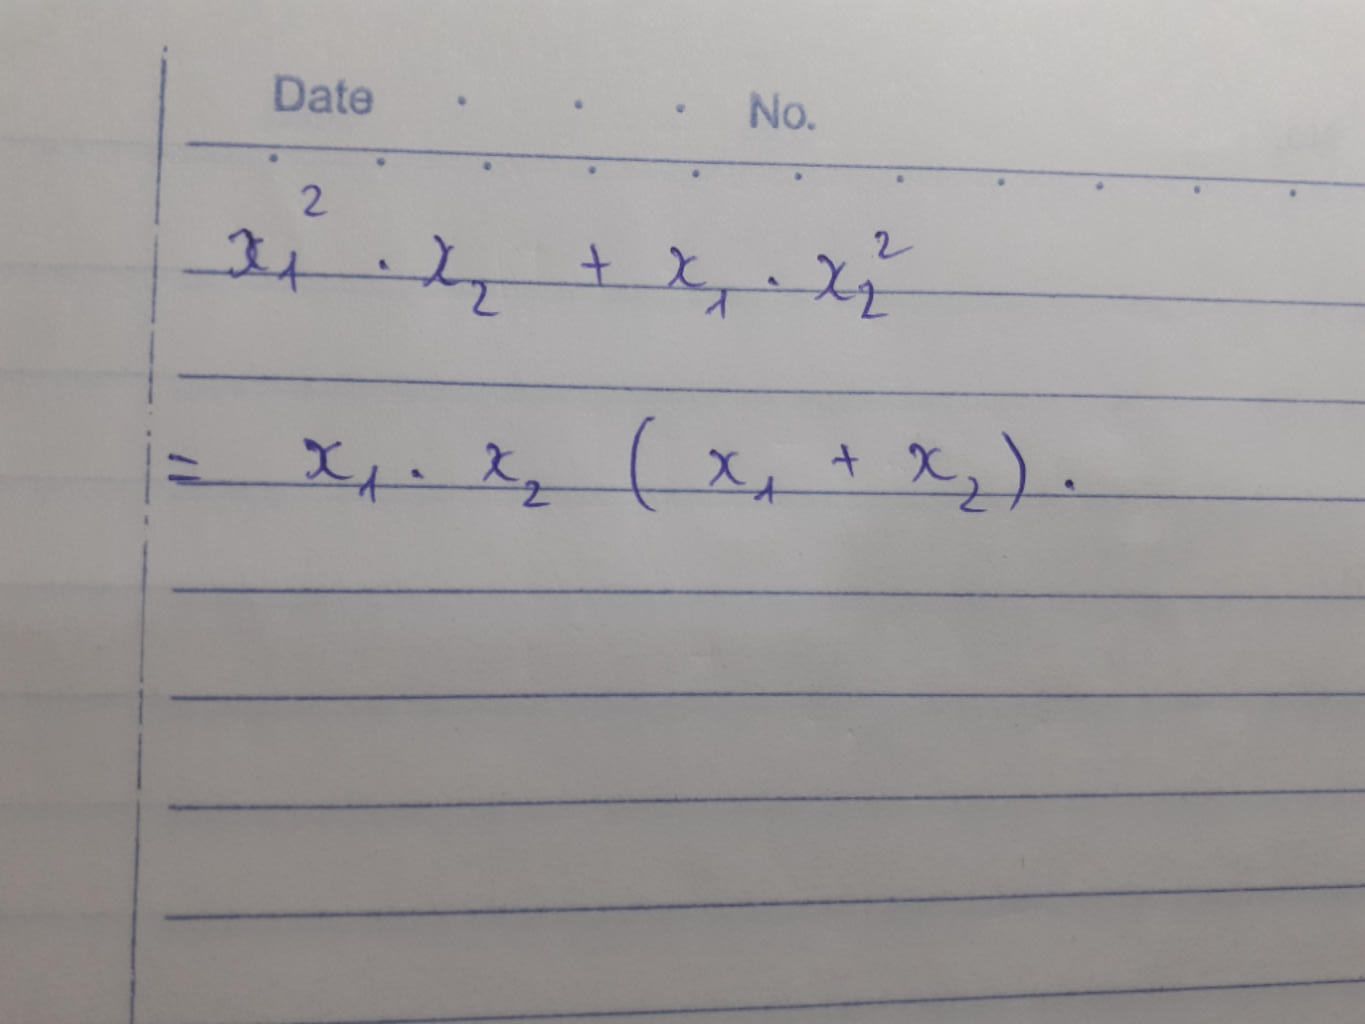 Date . . . No.
x₁² . x₂ + x₁ . x₂²
= x₁ . x₂ ( x₁ + x₂ ) .